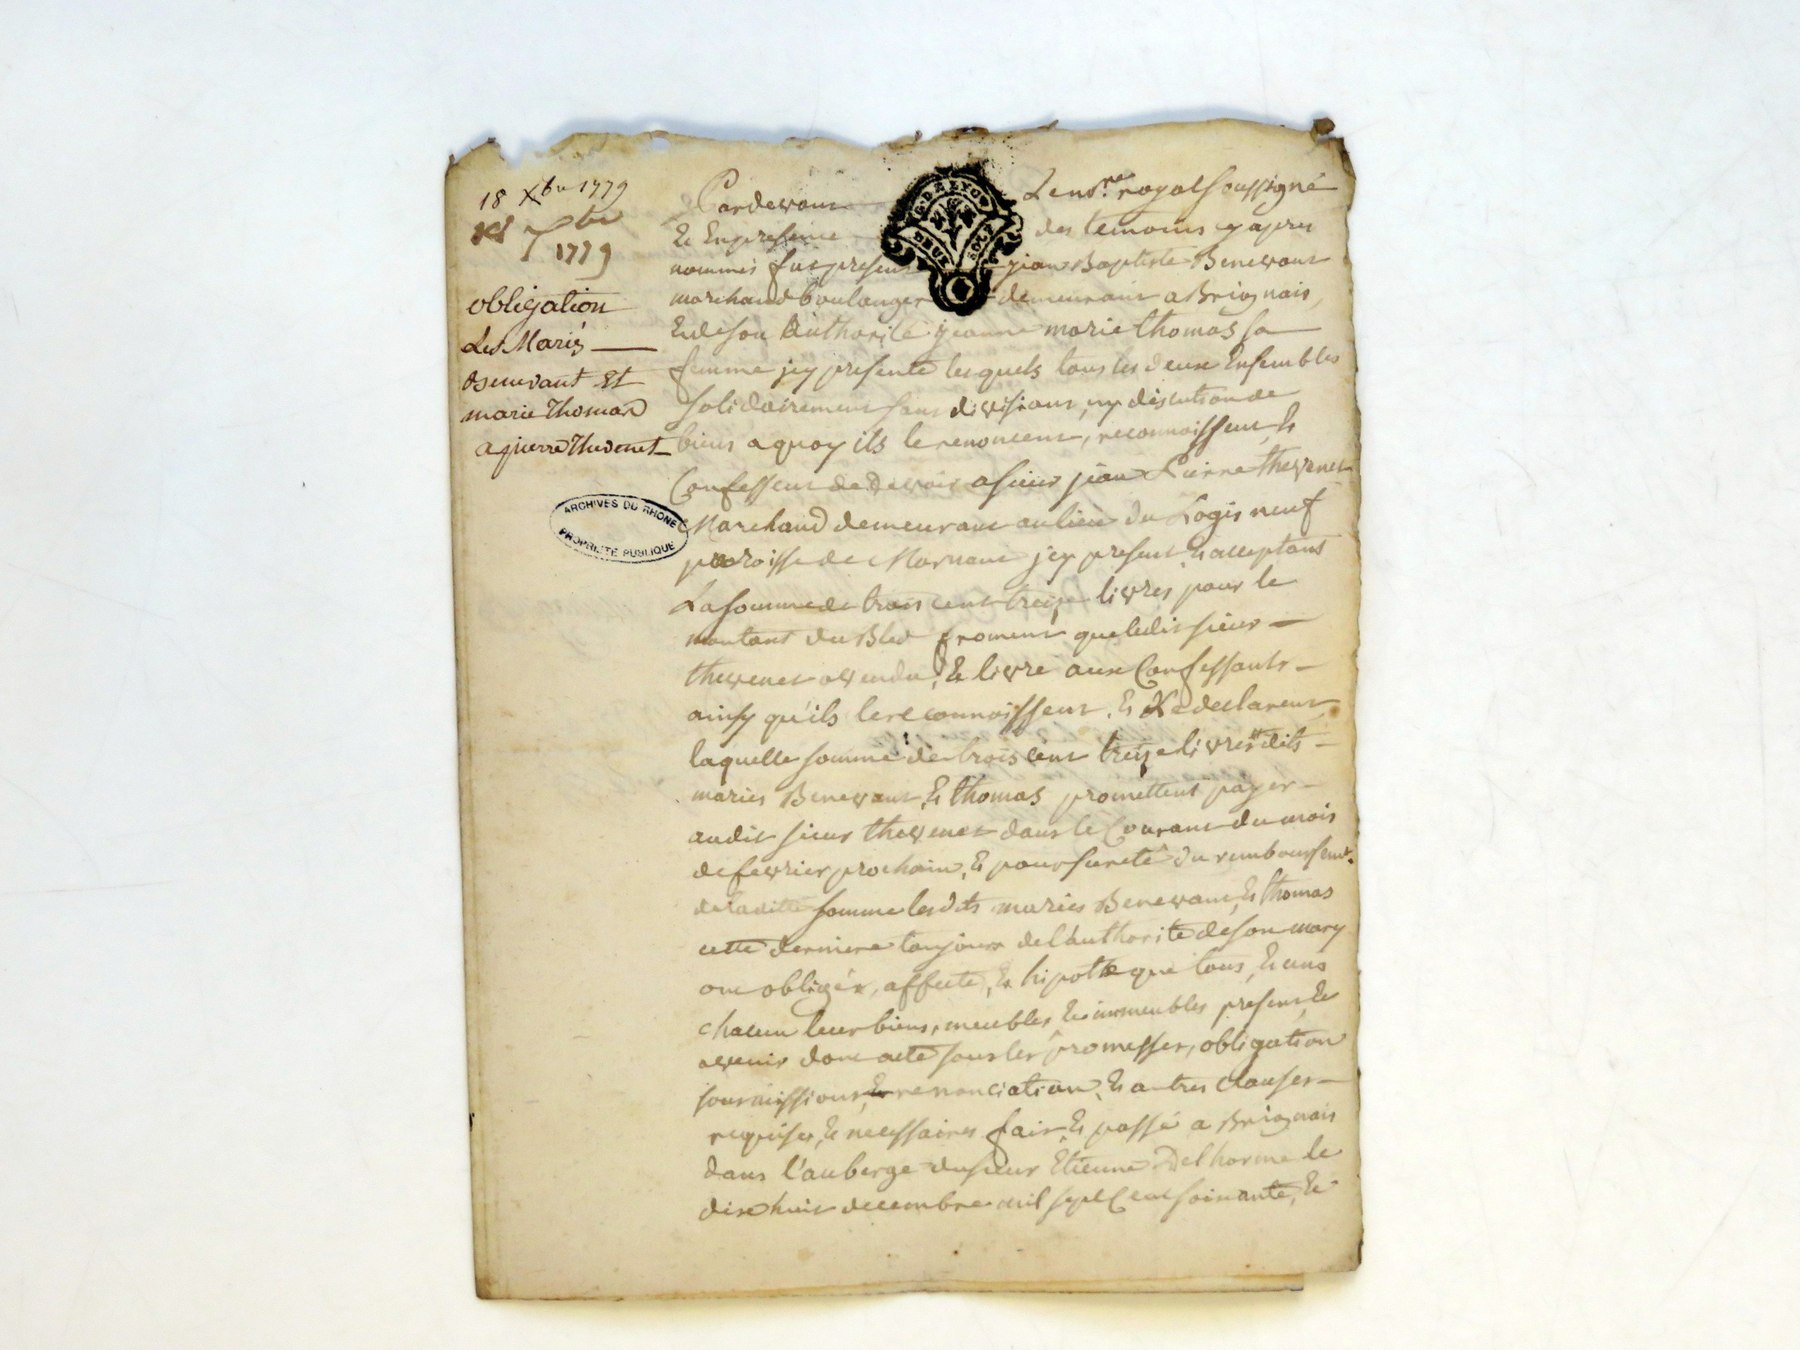 18 Xbre 1779
18 Xbre
1779
obligation
Les Mariés
Benevant Et
marie Thomas
a pierre Thevenet
ARCHIVES DU RHONE
PROPRIÉTÉ PUBLIQUE
G. DE LYON
DEUX SOLS
Pardevant Le nore royal soussigné
& En presence des temoins y apres
nommés fut present jean Baptiste Benevant
marchand boulanger demeurant a Brignais,
& de son Authorité jeanne marie thomas sa
femme jcy presente lesquels tous les deux Ensembles
solidairement sans divisions, ny discution de
biens a quoy ils le renoncent, reconnoissent &
Confessent de devoir a sieur jean Pierre thevenet
Marchand demeurant au lieu du Logis neuf
paroisse de Mornant jcy present & acceptant
La somme de trois cent treize livres pour le
montant du Bled froment que ledit sieur
thevenet a vendu, & livré aux Confessants
ainsy qu'ils le reconnoissent, & Le declarent
laquelle somme de trois cent treize livres lldits
mariés Benevant & thomas promettent payer
audit sieur thevenet dans le Courant du mois
de fevrier prochain, & pour sureté du remboursemt.
de laditte somme lesdits mariés Benevant, & thomas
cette derniere toujours de l'authorité de son mary
ont obligés, affecté, & hipotéqué tous, & uns
chacun leur biens, meubles, & immeubles presens, &
avenir dont acte sous les promesses, obligation
soumissions, & renonciation, & autres clauses
requises, & necessaires fait & passé a Brignais
dans l'auberge du sieur Etienne Delhorme le
dixe huit decembre mil sept Cent soixante, &